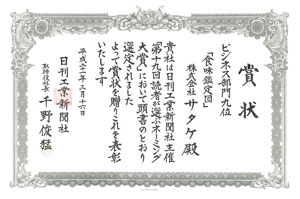 賞状
ビジネス部門九位
「食味鑑定団」
株式会社サタケ殿
貴社は日刊工業新聞社主催
第十九回読者が選ぶネーミング
大賞において頭書のとおり
選定されました
よって賞状を贈りこれを表彰
いたします
平成二十一年二月十六日
日刊工業新聞社
取締役社長 千野俊猛